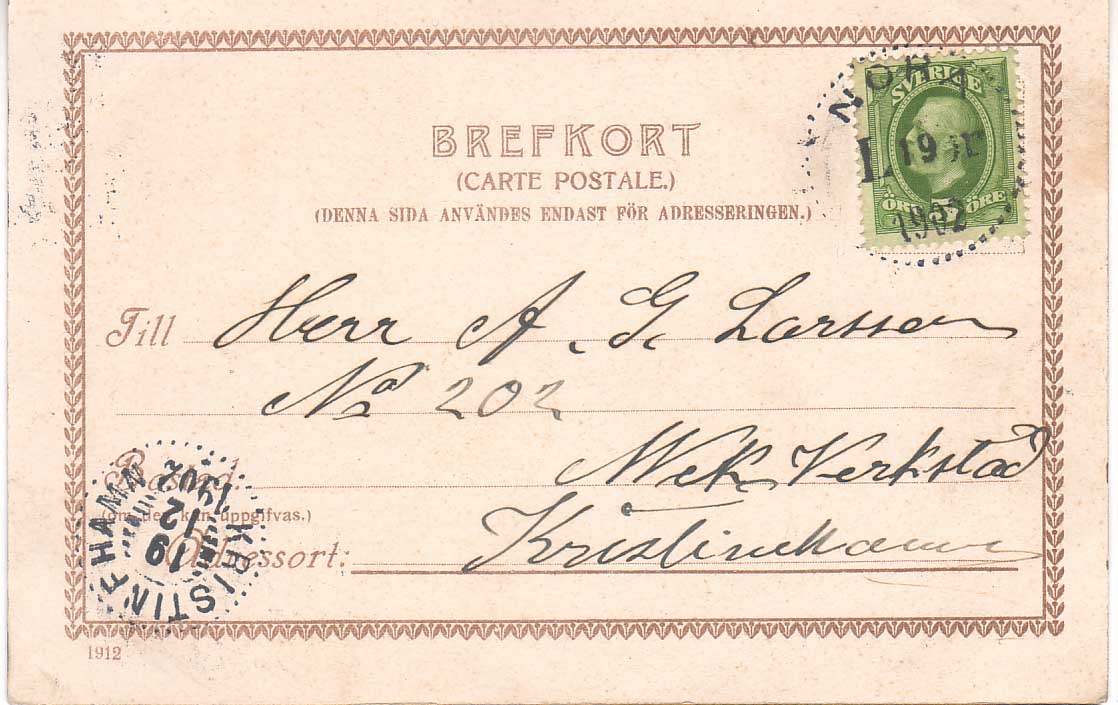 NORA
SVERIGE
L 19
ÖRE ÖRE
1902
BREFKORT
(CARTE POSTALE.)
(DENNA SIDA ANVÄNDES ENDAST FÖR ADRESSERINGEN.)
Till Herr A. G. Larsson
No 202
Mek Verkstad
(om den kan uppgifvas.)
Adressort: Kristinehamn
KRISTINEHAMN
19
12
1902
1912